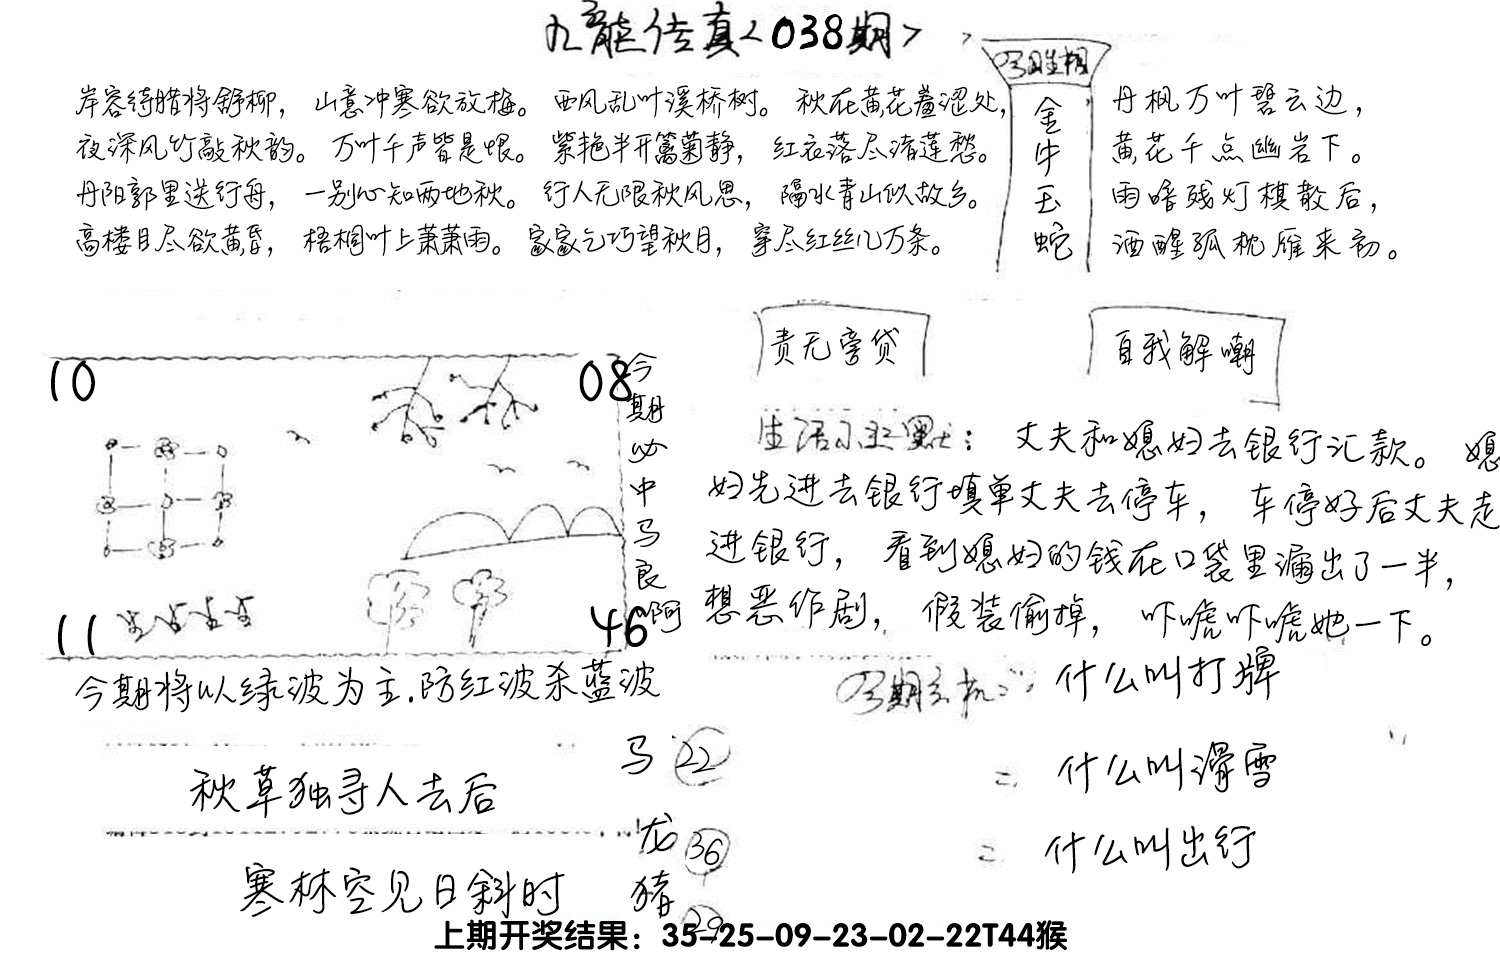 九龙传真<038期>
岸容待腊将舒柳，山意冲寒欲放梅。西风乱叶溪桥树。秋在黄花羞涩处，
夜深风竹敲秋韵。万叶千声皆是恨。紫艳半开篱菊静，红衣落尽渚莲愁。
丹阳郭里送行舟，一别心知两地秋。行人无限秋风思，隔水青山似故乡。
高楼目尽欲黄昏，梧桐叶上萧萧雨。家家乞巧望秋月，穿尽红丝几万条。
今期生相
金
牛
玉
蛇
丹枫万叶碧云边，
黄花千点幽岩下。
雨暗残灯棋散后，
酒醒孤枕雁来初。
责无旁贷
自我解嘲
10
08
11
46
今
期
必
中
马
良
啊
生活小幽默：丈夫和媳妇去银行汇款。媳
妇先进去银行填单丈夫去停车，车停好后丈夫走
进银行，看到媳妇的钱在口袋里漏出了一半，
想恶作剧，假装偷掉，吓唬吓唬她一下。
今期将以绿波为主.防红波杀蓝波
今期玄机：什么叫打牌
= 什么叫滑雪
= 什么叫出行
秋草独寻人去后
寒林空见日斜时
马 22
龙 36
猪 29
上期开奖结果：35-25-09-23-02-22T44猴